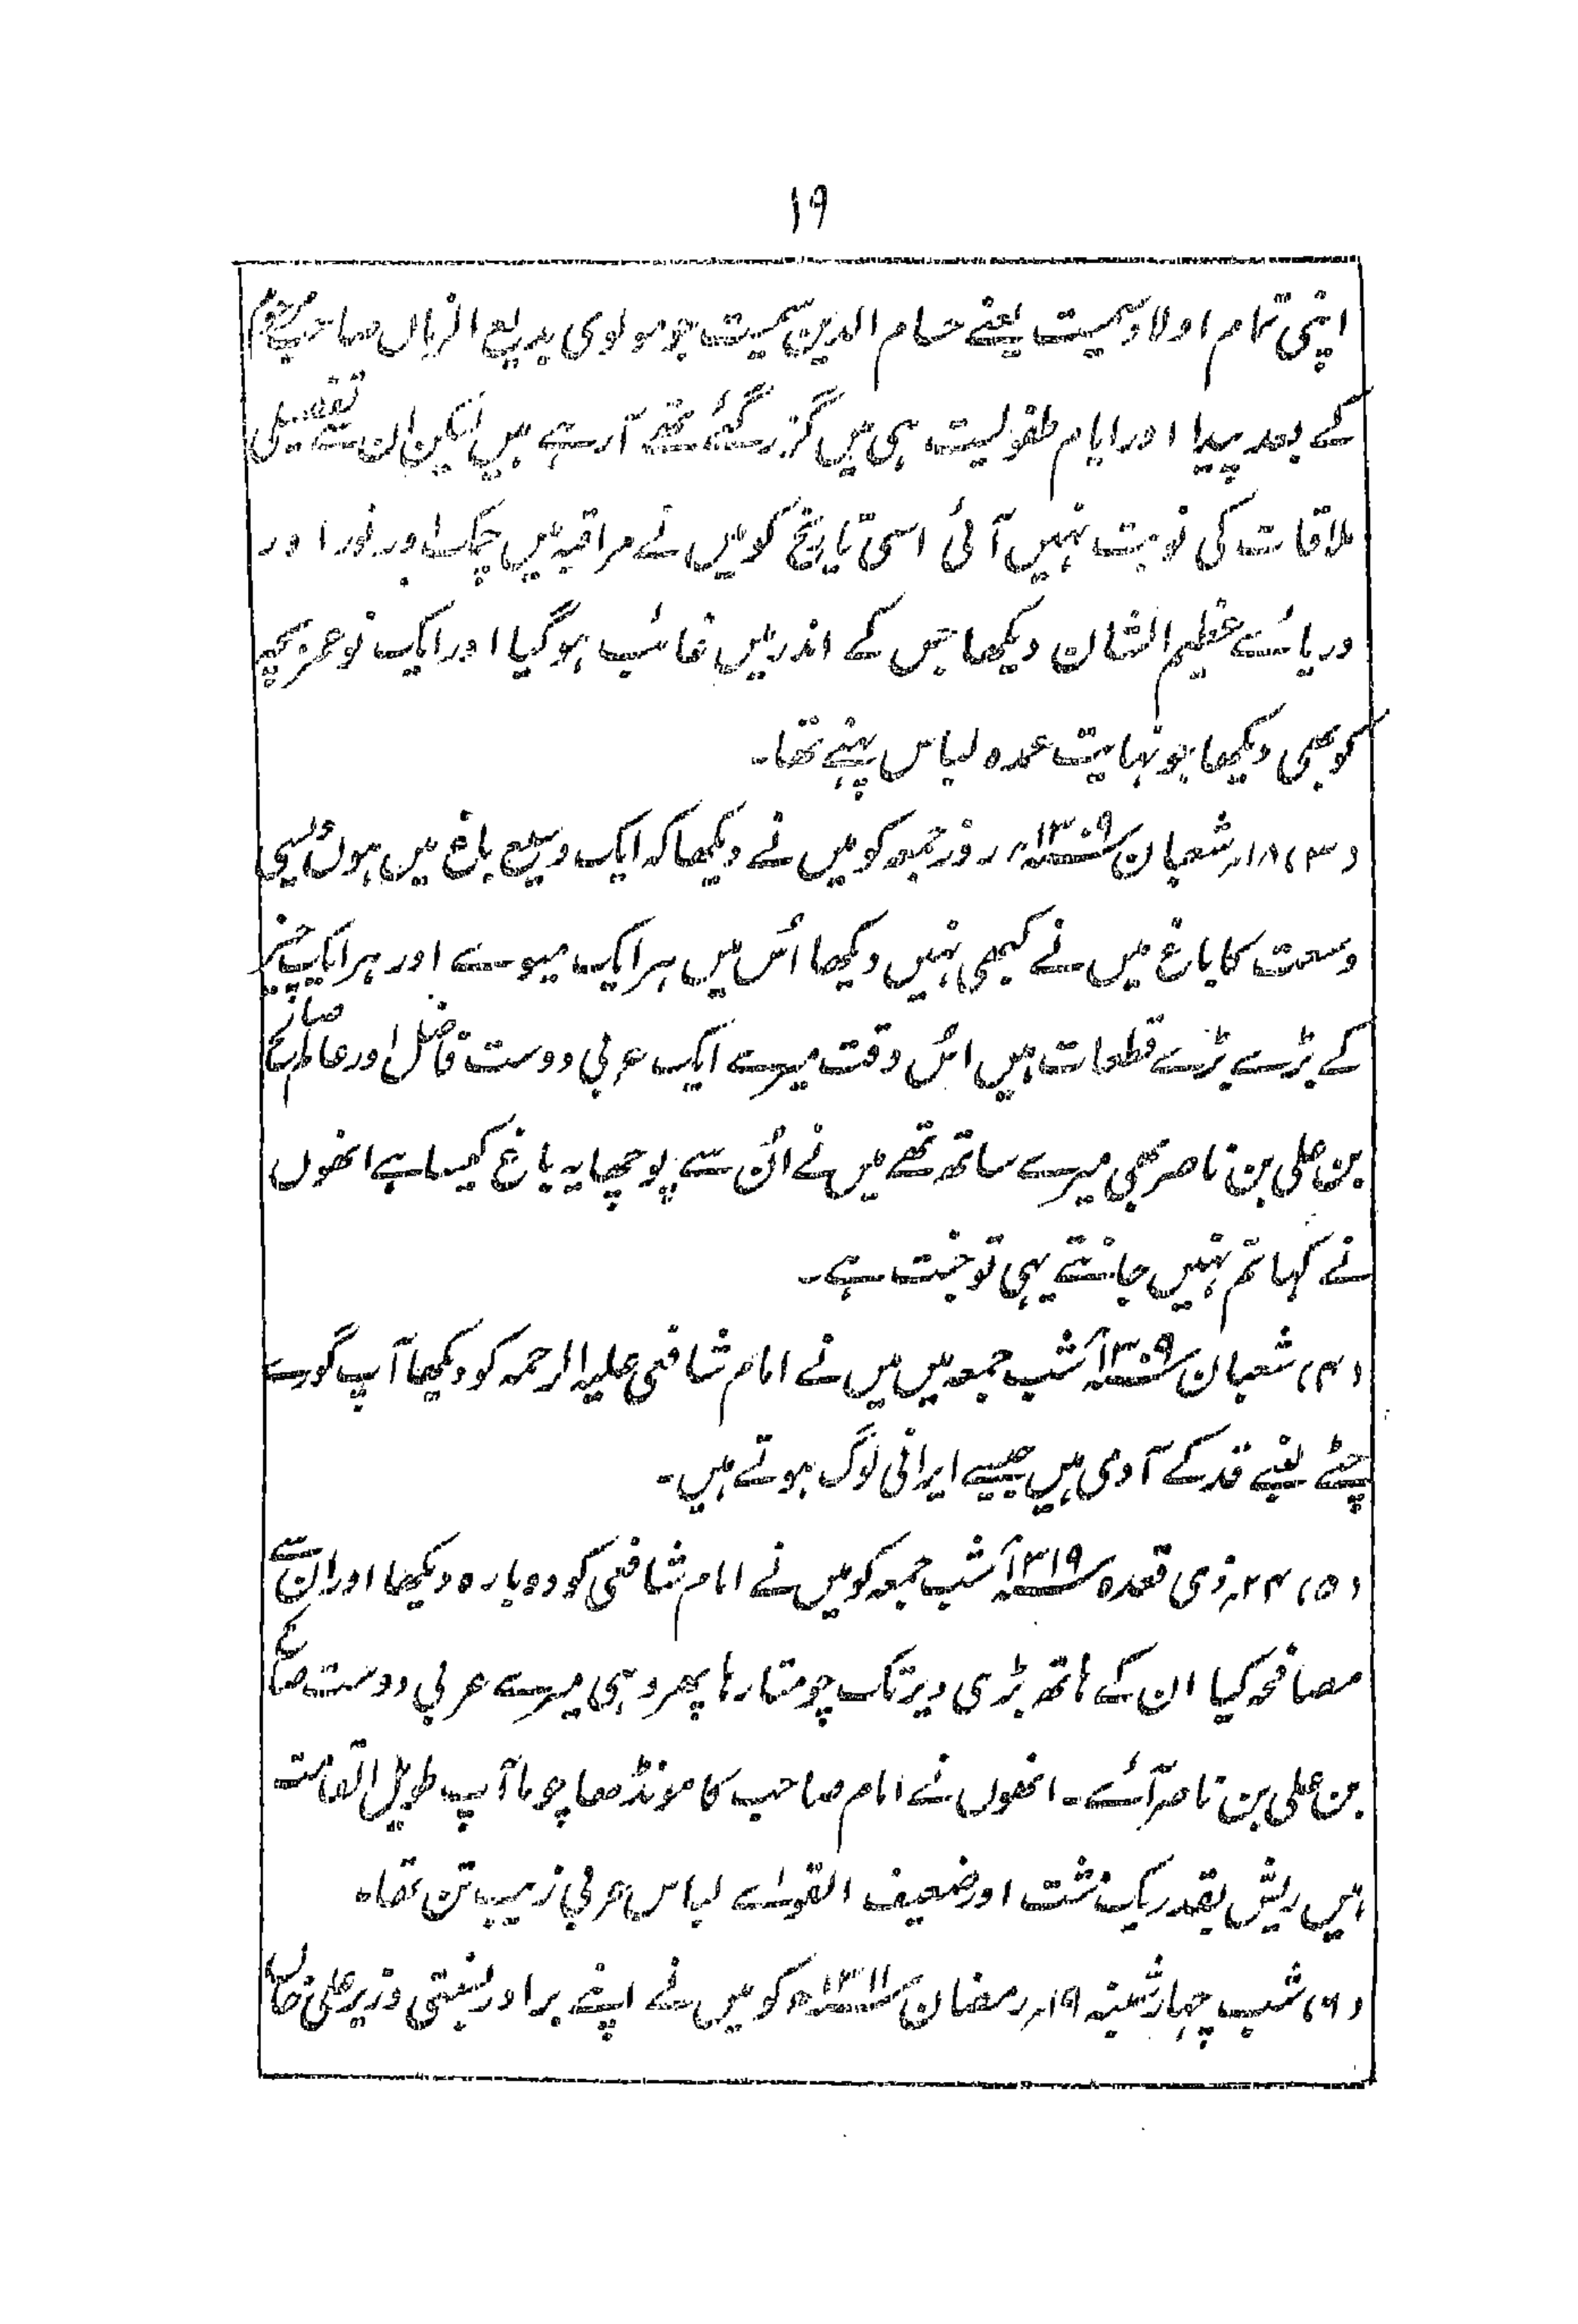 ۱۹
اپنی تمام اولاد سمیت یعنے حسام الدین سمیت جو مولوی بدیع الزماں صاحب مرحوم
کے بعد پیدا اور ایام طفولیت ہی میں گزر گئے تھے آرہے ہیں لیکن ان سے تفصیلی
ملاقات کی نوبت نہیں آئی اسی تاریخ کو میں نے مراقبہ میں چمک اور نور اور
دریائے عظیم الشان دیکھا جس کے اندر میں غائب ہو گیا اور ایک نو عمر بچہ
کو بھی دیکھا جو نہایت عمدہ لباس پہنے تھا۔
(۳) ۱۸؍ شعبان ۱۳۰۹ھ روز جمعہ کو میں نے دیکھا کہ ایک وسیع باغ میں ہوں ایسی
وسعت کا باغ میں نے کبھی نہیں دیکھا اُس میں ہر ایک میوے اور ہر ایک چیز
کے بڑے بڑے قطعات ہیں اُس وقت میرے ایک عربی دوست فاضل اور عالم صالح
بن علی بن ناصر بھی میرے ساتھ تھے میں نے اُن سے پوچھا یہ باغ کیسا ہے انھوں
نے کہا تم نہیں جانتے یہی تو جنت ہے۔
(۴) شعبان ۱۳۰۹ھ شب جمعہ میں میں نے امام شافعی علیہ الرحمہ کو دیکھا آپ گورے
چٹے لمبے قد کے آدمی ہیں جیسے ایرانی لوگ ہوتے ہیں۔
(۵) ۲۴؍ ذی قعدہ ۱۳۱۹ھ شب جمعہ کو میں نے امام شافعی کو دوبارہ دیکھا اور ان سے
مصافحہ کیا ان کے ہاتھ بڑی دیر تک چومتا رہا پھر وہی میرے عربی دوست صالح
بن علی بن ناصر آئے۔ انھوں نے امام صاحب کا مونڈھا چوما آپ طویل القامت
ہیں ریش بقدر یک مشت اور ضعیف القواے لباس عربی زیب تن تھا۔
(۶) شب چہار شنبہ ۱۹؍ رمضان ۱۳۱۱ھ کو میں نے اپنے برادر نسبتی وزیر علی خاں